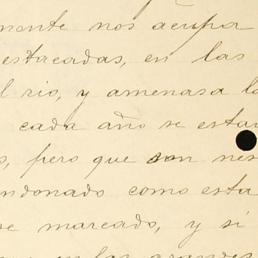 mente nos acupa
estacadas, en las
l rio, y amenasa la
cada año se esta
s, pero que son nes
ndonado como esta
re marcado, y si
en las grandes